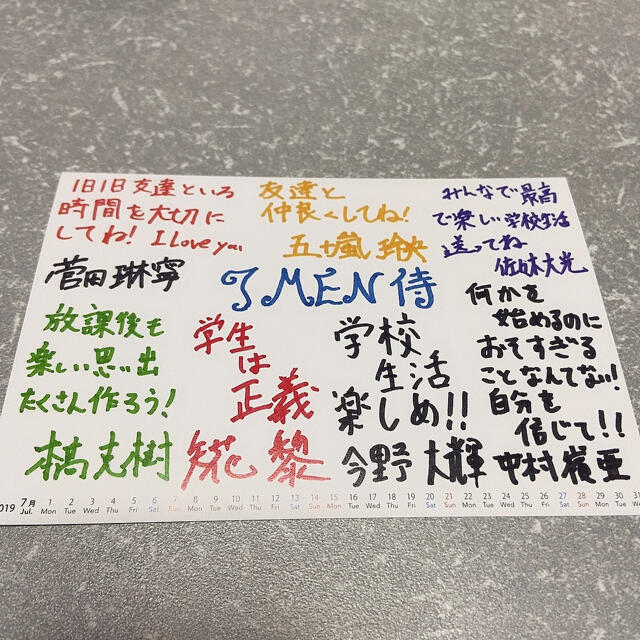 1日1日友達といる
時間を大切に
してね! I Love you
菅田琳寧
友達と
仲良くしてね!
五十嵐玲央
みんなで最高
で楽しい学校生活
送ってね
佐々木大光
7 MEN 侍
放課後も
楽しい思い出
たくさん作ろう!
本髙克樹
学生
は
正義
矢花黎
学校
生活
楽しめ!!
今野大輝
何かを
始めるのに
おそすぎる
ことなんてない!
自分を
信じて!!
中村嶺亜
2019 7月 1 2 3 4 5 6 7 8 9 10 11 12 13 14 15 16 17 18 19 20 21 22 23 24 25 26 27 28 29 30 31
Jul. Mon Tue Wed Thu Fri Sat Sun Mon Tue Wed Thu Fri Sat Sun Mon Tue Wed Thu Fri Sat Sun Mon Tue Wed Thu Fri Sat Sun Mon Tue